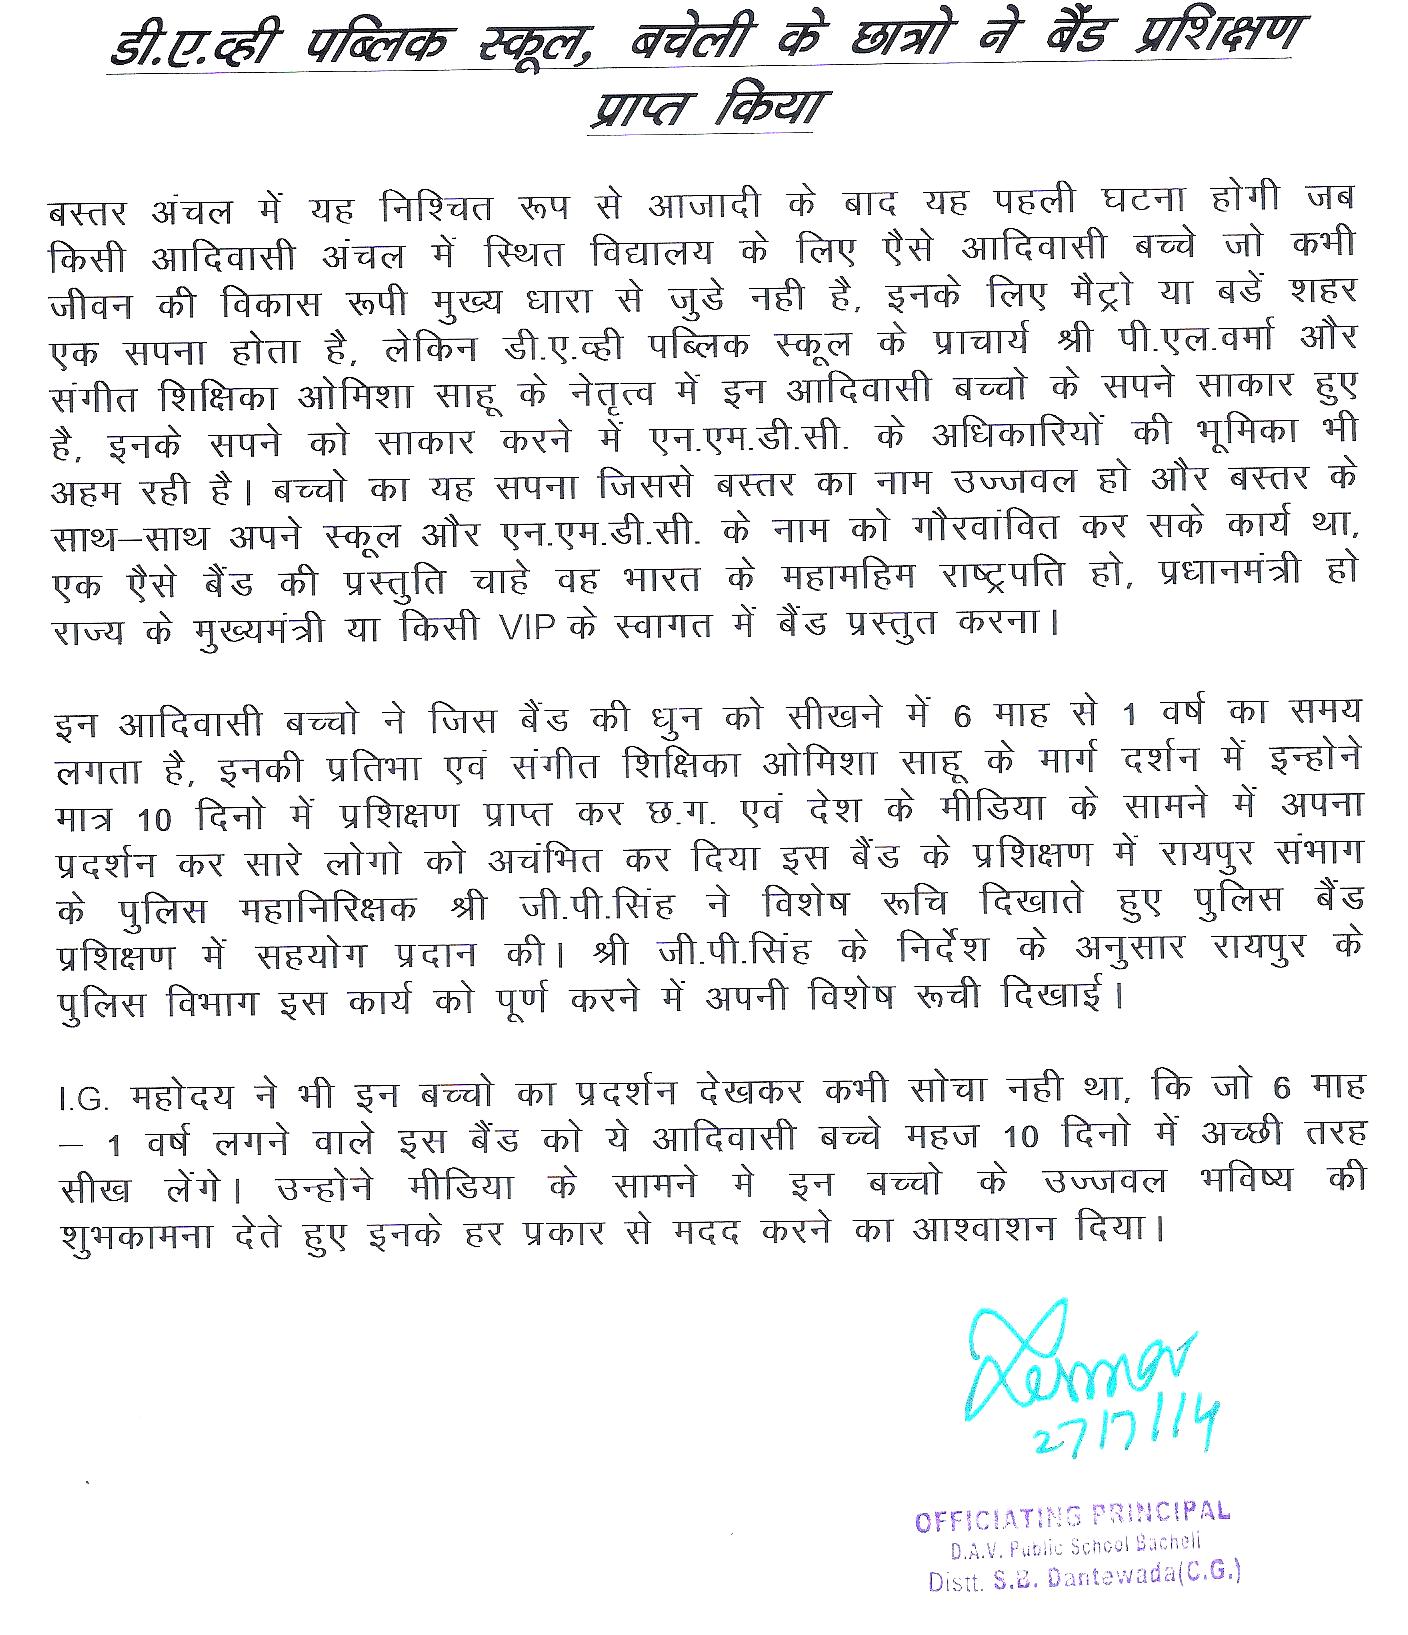 डी.ए.व्ही पब्लिक स्कूल, बचेली के छात्रो ने बैंड प्रशिक्षण
प्राप्त किया
बस्तर अंचल में यह निश्चित रूप से आजादी के बाद यह पहली घटना होगी जब
किसी आदिवासी अंचल में स्थित विद्यालय के लिए एैसे आदिवासी बच्चे जो कभी
जीवन की विकास रूपी मुख्य धारा से जुडे नही है, इनके लिए मैट्रो या बडें शहर
एक सपना होता है, लेकिन डी.ए.व्ही पब्लिक स्कूल के प्राचार्य श्री पी.एल.वर्मा और
संगीत शिक्षिका ओमिशा साहू के नेतृत्व में इन आदिवासी बच्चो के सपने साकार हुए
है, इनके सपने को साकार करने में एन.एम.डी.सी. के अधिकारियों की भूमिका भी
अहम रही है। बच्चो का यह सपना जिससे बस्तर का नाम उज्जवल हो और बस्तर के
साथ–साथ अपने स्कूल और एन.एम.डी.सी. के नाम को गौरवांवित कर सके कार्य था,
एक एैसे बैंड की प्रस्तुति चाहे वह भारत के महामहिम राष्ट्रपति हो, प्रधानमंत्री हो
राज्य के मुख्यमंत्री या किसी VIP के स्वागत में बैंड प्रस्तुत करना।
इन आदिवासी बच्चो ने जिस बैंड की धुन को सीखने में 6 माह से 1 वर्ष का समय
लगता है, इनकी प्रतिभा एवं संगीत शिक्षिका ओमिशा साहू के मार्ग दर्शन में इन्होने
मात्र 10 दिनो में प्रशिक्षण प्राप्त कर छ.ग. एवं देश के मीडिया के सामने में अपना
प्रदर्शन कर सारे लोगो को अचंभित कर दिया इस बैंड के प्रशिक्षण में रायपुर संभाग
के पुलिस महानिरिक्षक श्री जी.पी.सिंह ने विशेष रूचि दिखाते हुए पुलिस बैंड
प्रशिक्षण में सहयोग प्रदान की। श्री जी.पी.सिंह के निर्देश के अनुसार रायपुर के
पुलिस विभाग इस कार्य को पूर्ण करने में अपनी विशेष रूची दिखाई।
I.G. महोदय ने भी इन बच्चो का प्रदर्शन देखकर कभी सोचा नही था, कि जो 6 माह
– 1 वर्ष लगने वाले इस बैंड को ये आदिवासी बच्चे महज 10 दिनो में अच्छी तरह
सीख लेंगे। उन्होने मीडिया के सामने मे इन बच्चो के उज्जवल भविष्य की
शुभकामना देते हुए इनके हर प्रकार से मदद करने का आश्वाशन दिया।
27/7/14
OFFICIATING PRINCIPAL
D.A.V. Public School Bacheli
Distt. S.B. Dantewada(C.G.)